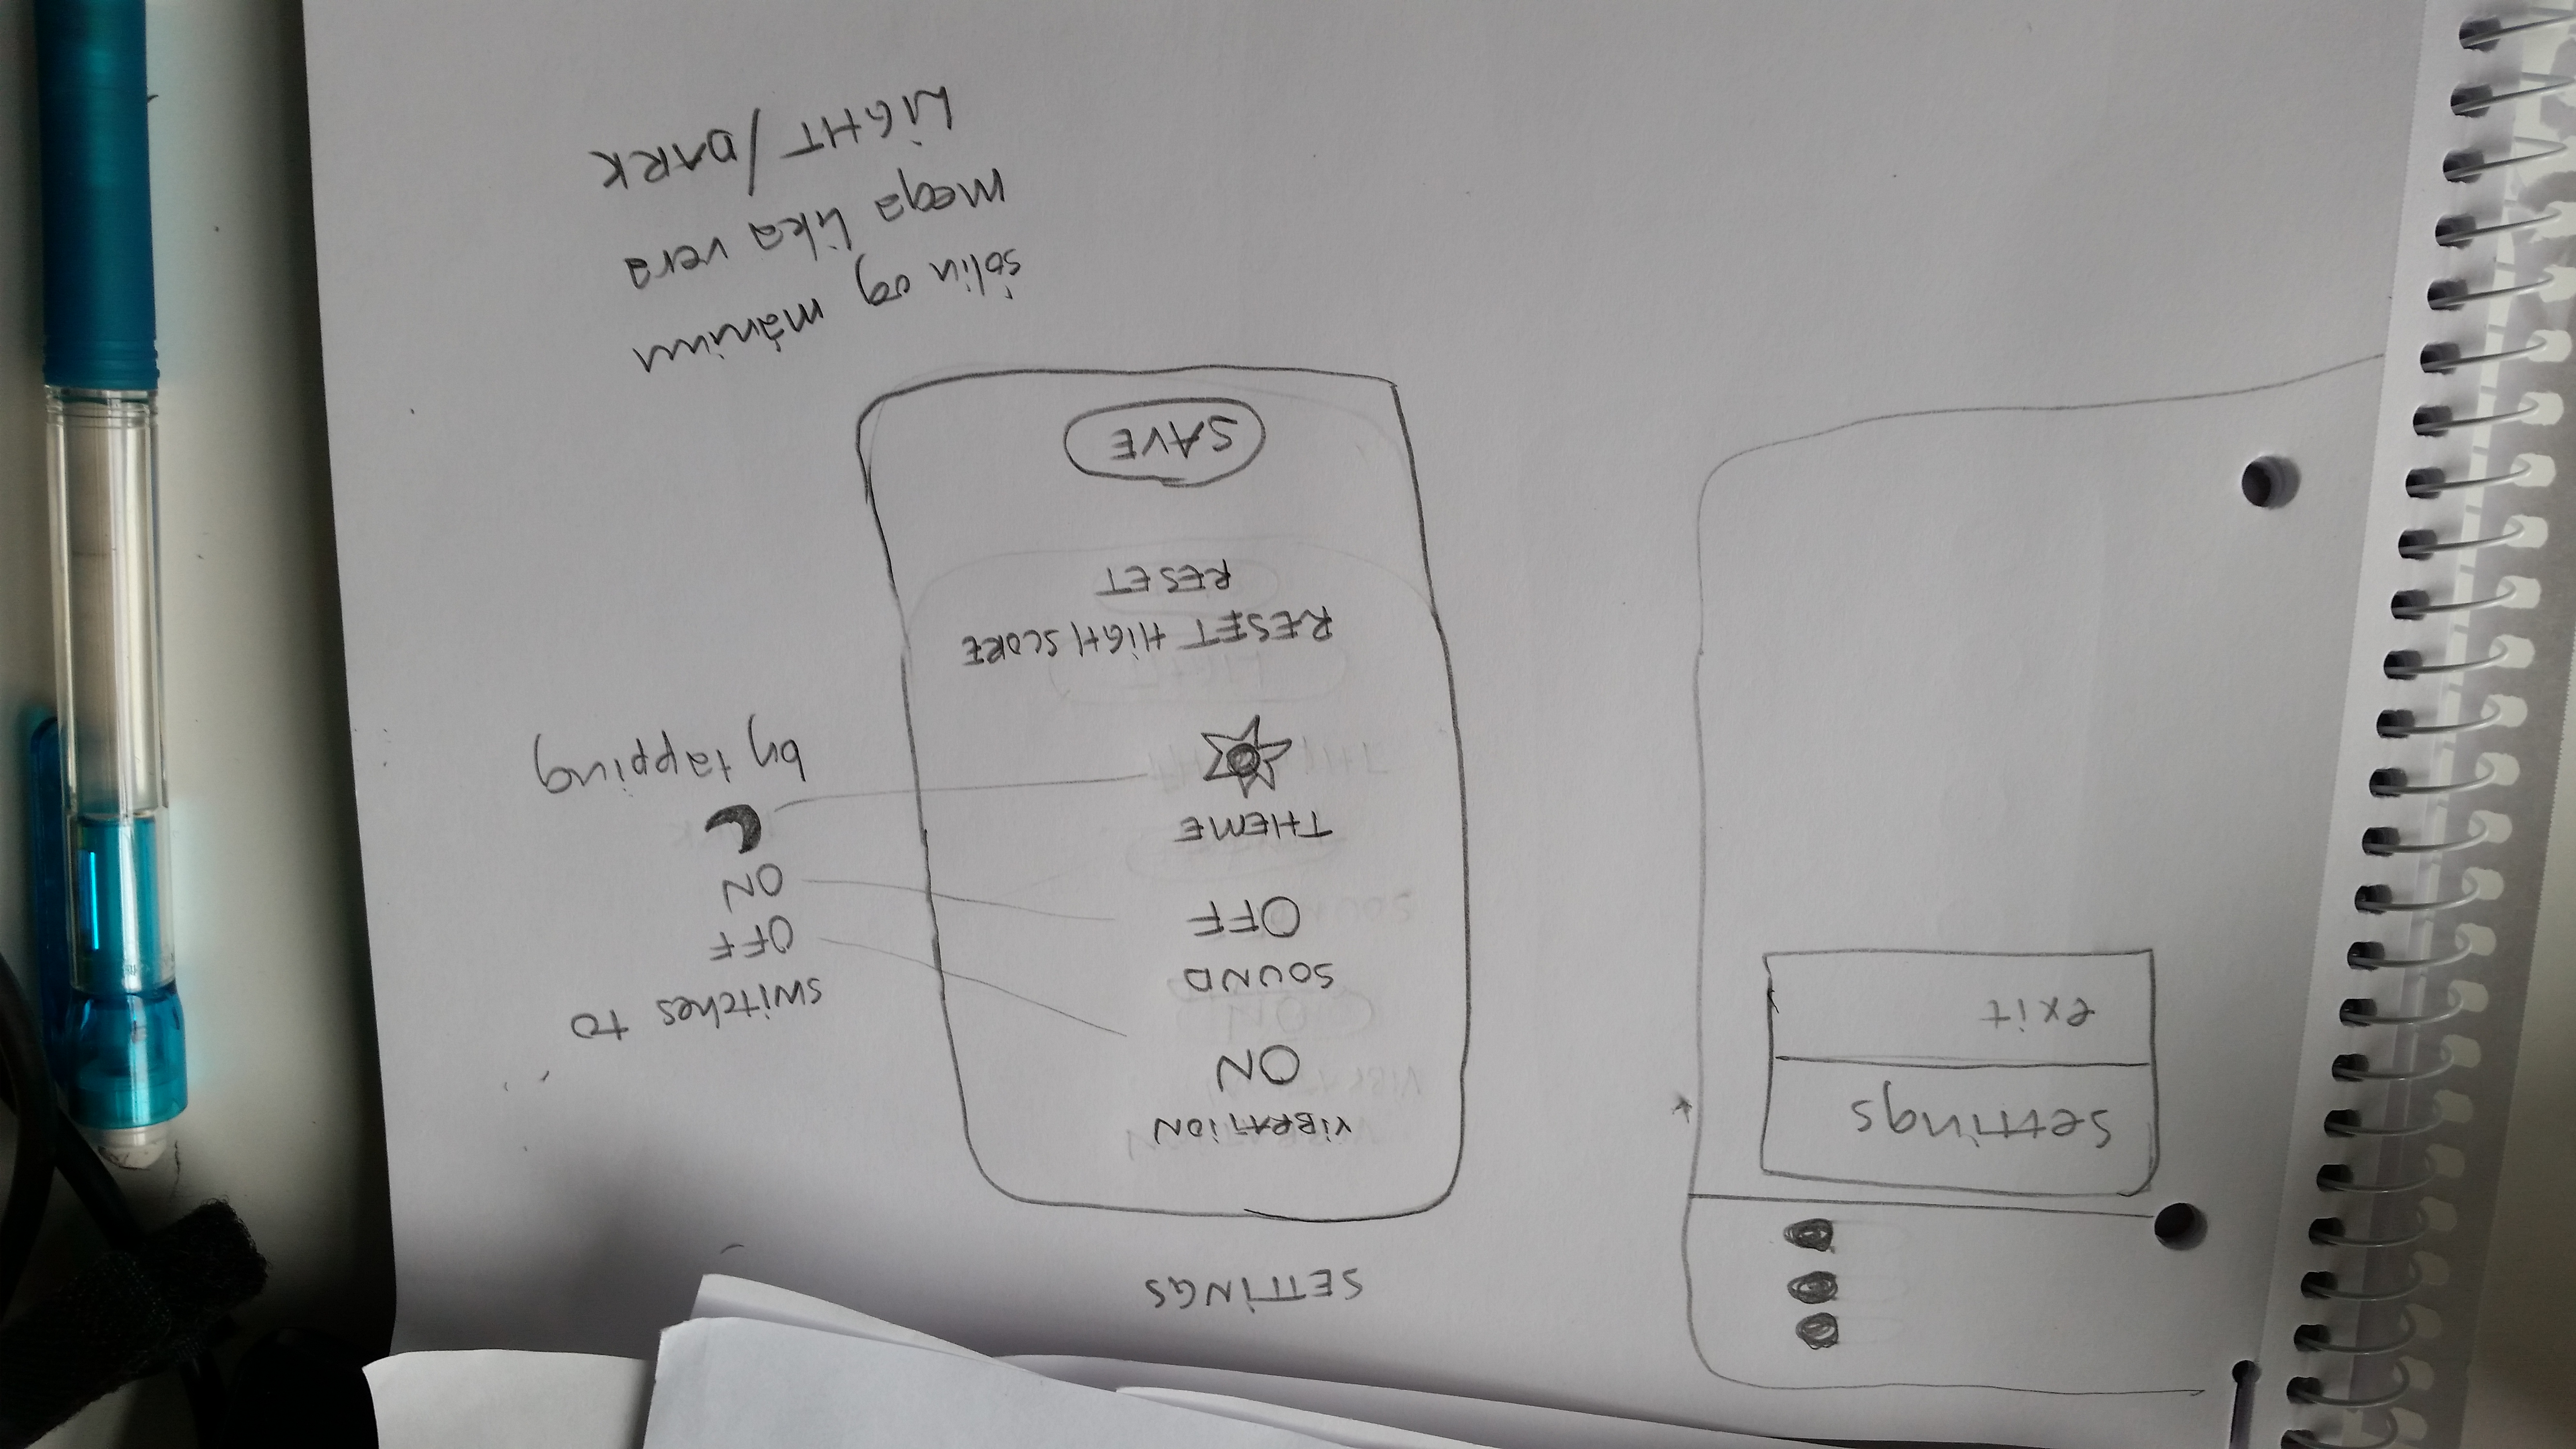 settings
exit
SETTINGS
VIBRATION
ON
SOUND
OFF
THEME
RESET HIGH SCORE
RESET
SAVE
switches to
OFF
ON
by tapping
sólin og máninn
mega líka vera
LIGHT/DARK